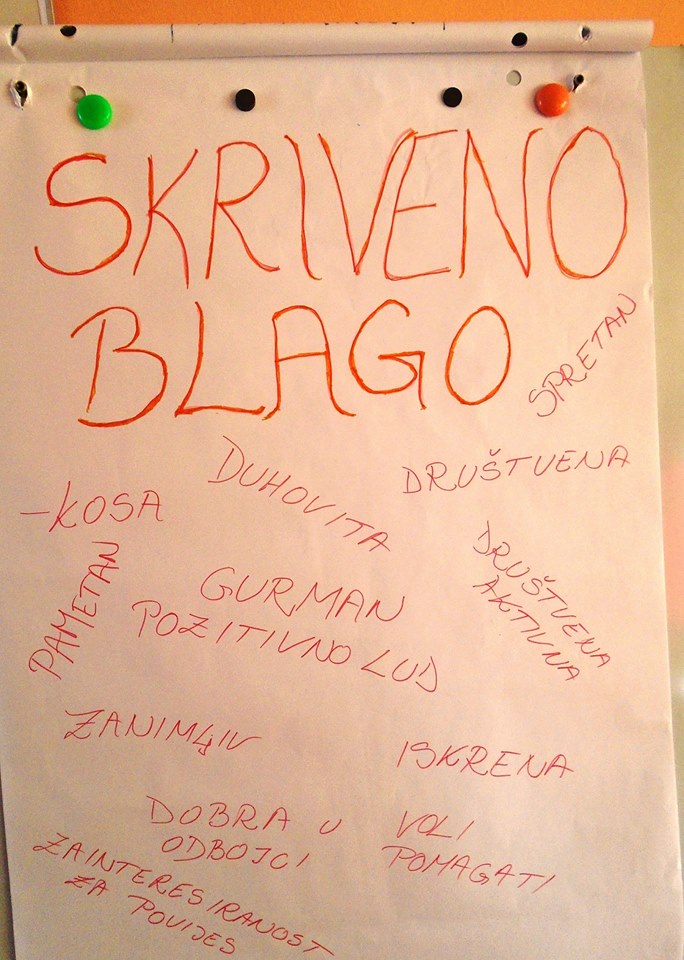 SKRIVENO
BLAGO
SPRETAN
DUHOVITA
DRUŠTVENA
-KOSA
PAMETAN
GURMAN
POZITIVNO LUD
DRUŠTVENA
AKTIVNA
ZANIMLJIV
ISKRENA
DOBRA U
ODBOJCI
VOLI
POMAGATI
ZAINTERESIRANOST
ZA POVIJES